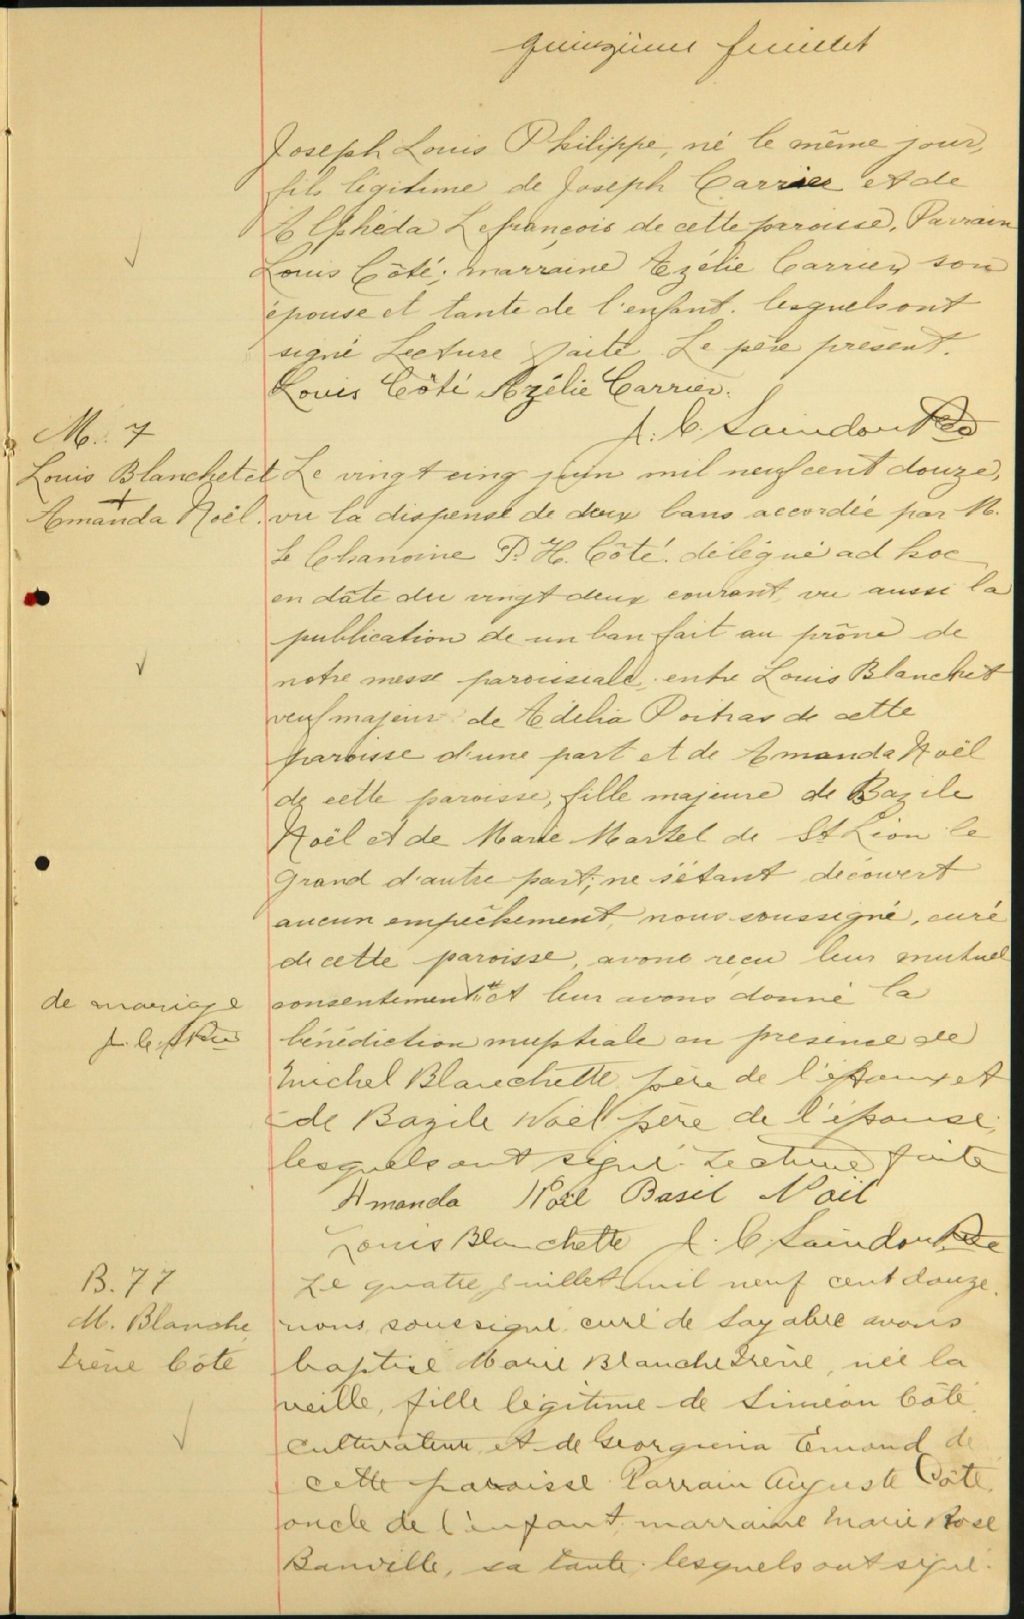 quinzième feuillet
Joseph Louis Philippe, né le même jour,
fils légitime de Joseph Carrier et de
Alphéda Lefrançois de cette paroisse. Parrain
Louis Côté; marraine Azélie Carrier son
épouse et tante de l'enfant. lesquels ont
signé Lecture faite. Le père présent.
Louis Côté Azélie Carrier.
J. C. Saindon Ptre
M. 7
Louis Blanchet et
Amanda Noël.
Le vingt cinq juin mil neuf cent douze,
vu la dispense de deux bans accordée par M.
le Chanoine P. H. Côté. délégué ad hoc
en date du vingt deux courant, vu aussi la
publication de un ban fait au prône de
notre messe paroissiale, entre Louis Blanchet
veuf majeur de Adélia Poitras de cette
paroisse d'une part et de Amanda Noël
de cette paroisse, fille majeure de Bazile
Noël et de Marie Martel de St Léon le
Grand d'autre part; ne s'étant découvert
aucun empêchement, nous soussigné, curé
de cette paroisse, avons reçu leur mutuel
consentement * et leur avons donné la
de mariage
J. C. S. Ptre
bénédiction nuptiale en présence de
Michel Blanchette père de l'époux et
de Bazile Noël père de l'épouse,
lesquels ont signé. Lecture faite
Amanda Noël Basil Noël
Louis Blanchette J. C. Saindon Ptre
B. 77
M. Blanche
Irène Côté
Le quatre juillet mil neuf cent douze.
nous, soussigné curé de Sayabec avons
baptisé Marie Blanche Irène, née la
veille, fille légitime de Siméon Côté
cultivateur et de Georgina Émond de
cette paroisse Parrain Auguste Côté,
oncle de l'enfant marraine Marie Rose
Banville, sa tante, lesquels ont signé.